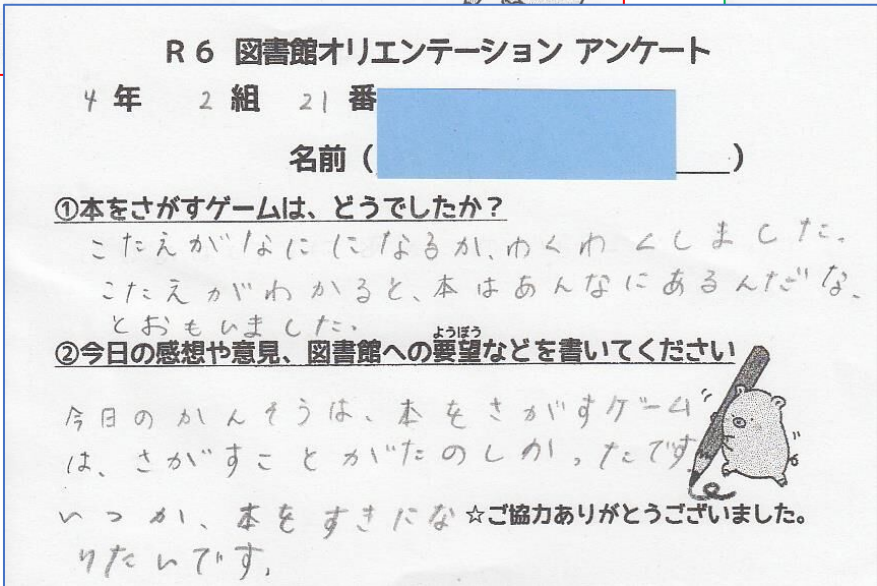 R6 図書館オリエンテーション アンケート
4年 2組 21番
名前( )
①本をさがすゲームは、どうでしたか?
こたえがなにになるか、わくわくしました。
こたえがわかると、本はあんなにあるんだな、
とおもいました。
ようぼう
②今日の感想や意見、図書館への要望などを書いてください
今日のかんそうは、本をさがすゲーム
は、さがすことがたのしかったです。
いつか、本をすきにな
☆ご協力ありがとうございました。
りたいです。